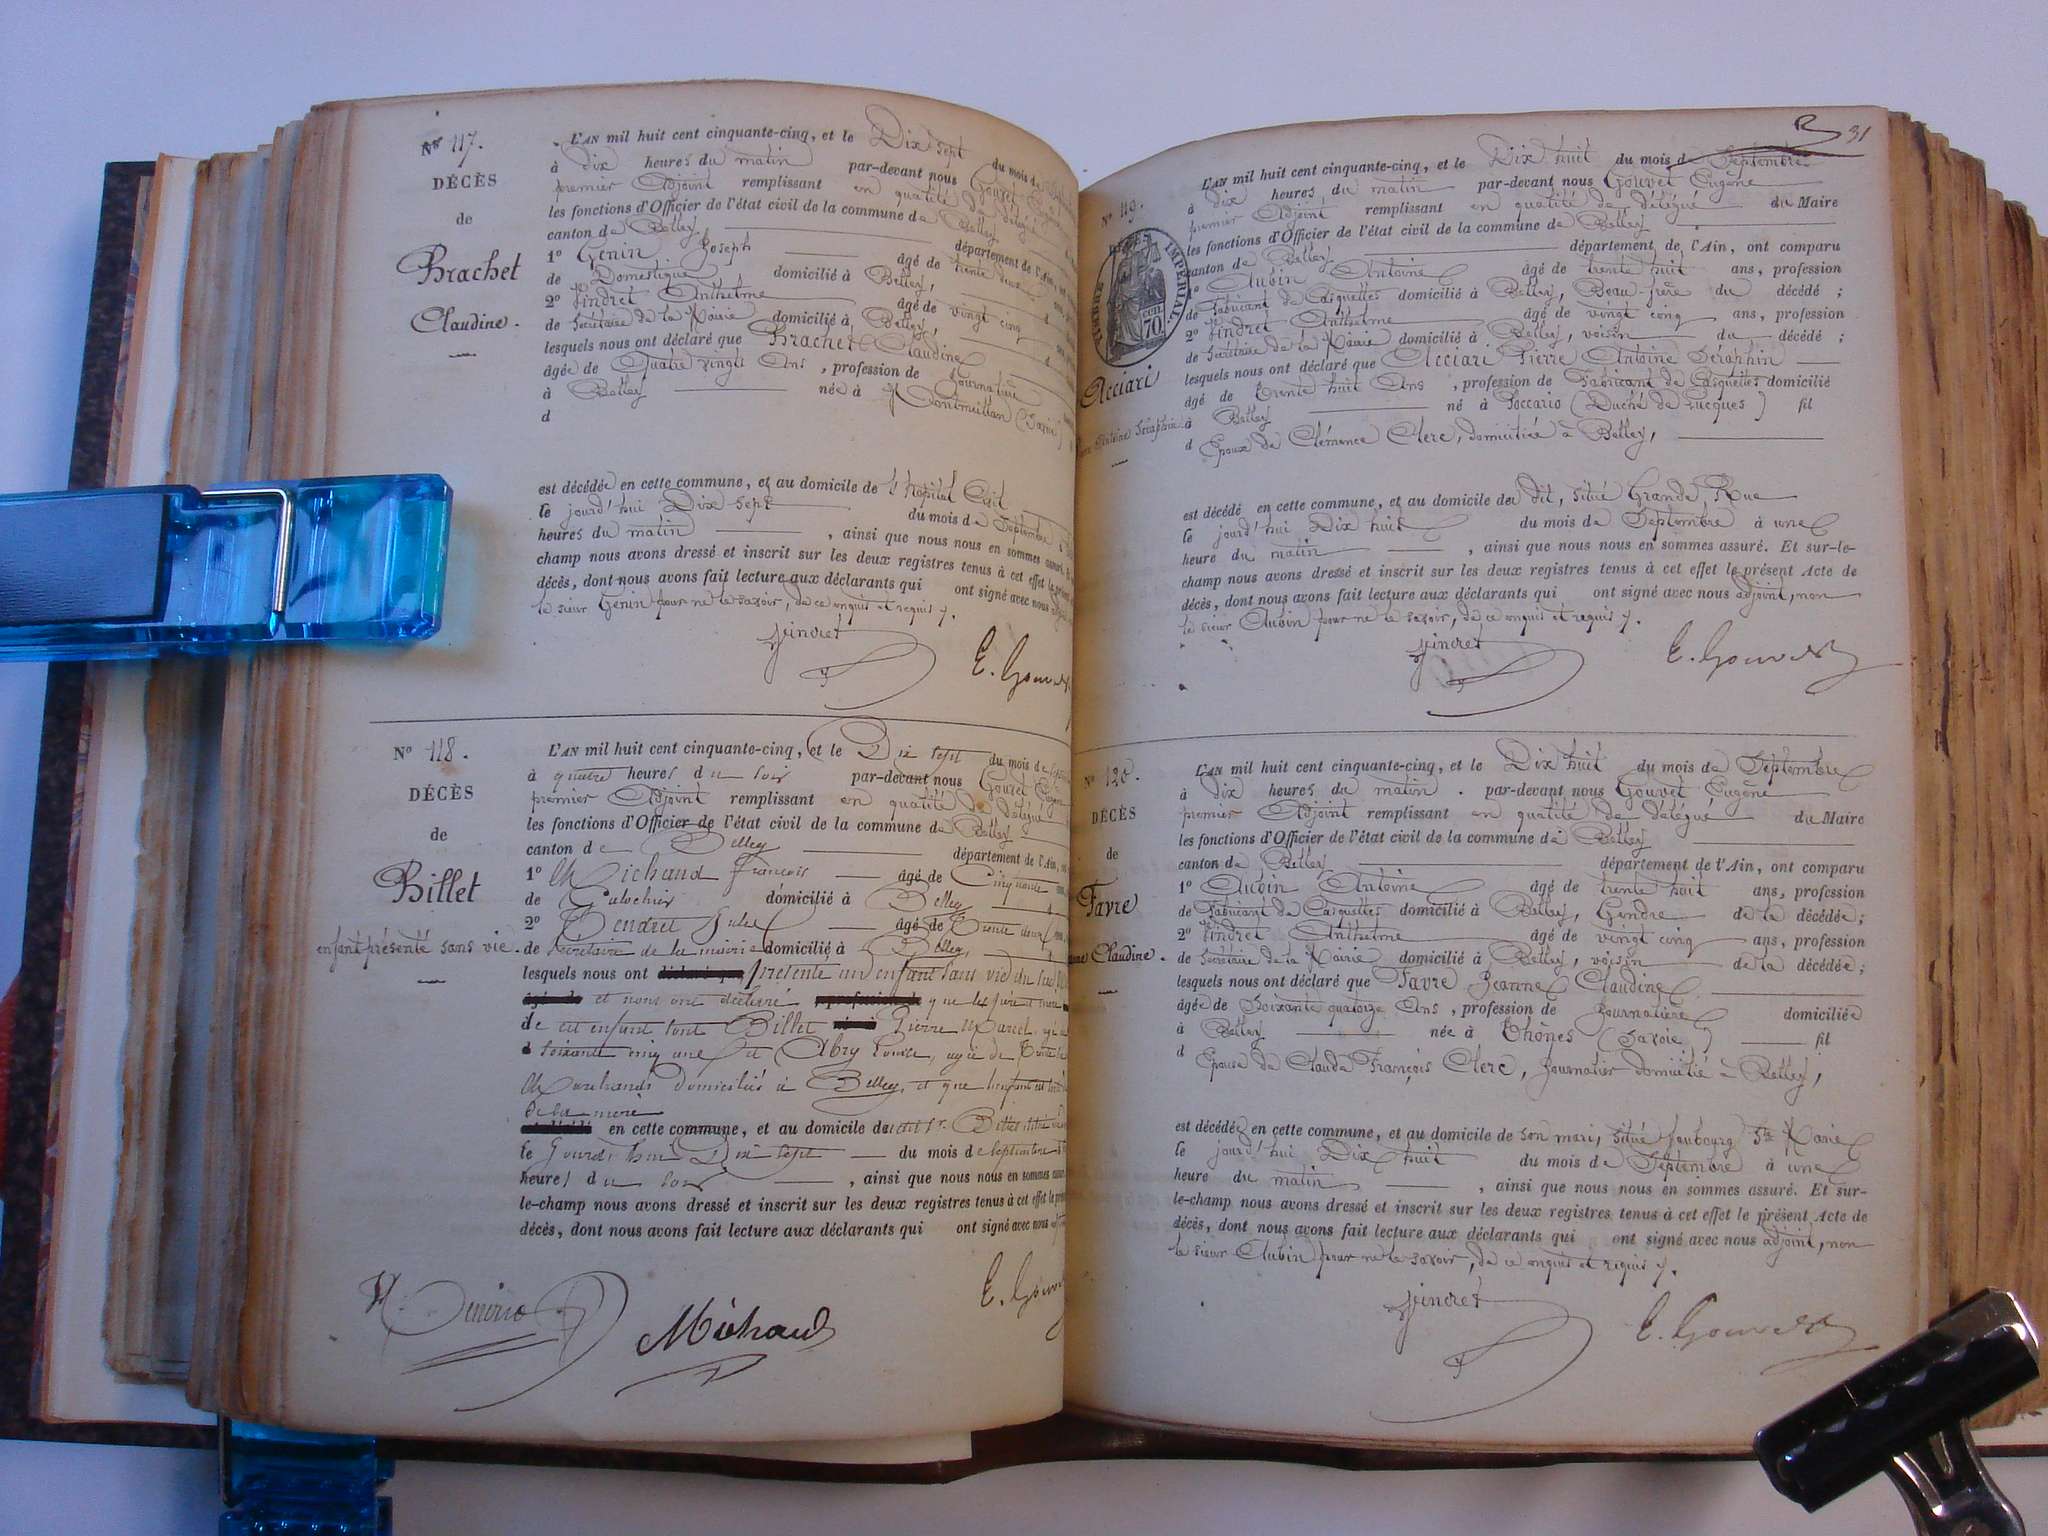 No 117.
DÉCÈS
de
Brachet
Claudine.
L'AN mil huit cent cinquante-cinq, et le Dix sept du mois de
à dix heures du matin par-devant nous Gouvet
premier Adjoint remplissant en qualité de délégué
les fonctions d'Officier de l'état civil de la commune de Belley
canton de Belley département de l'Ain,
1o Genin Joseph âgé de trente deux
de Domestique domicilié à Belley,
2o Vindret Anthelme âgé de vingt cinq
de Secrétaire de la Mairie domicilié à Belley,
lesquels nous ont déclaré que Brachet Claudine
âgée de Quatre vingts Ans, profession de Journalière
à Belley née à Montmeillan (Savoie)
d
est décédée en cette commune, et au domicile de l'hôpital
le jourd'hui Dix sept du mois de Septembre
heures du matin, ainsi que nous nous en sommes assuré.
champ nous avons dressé et inscrit sur les deux registres tenus à cet effet le
décès, dont nous avons fait lecture aux déclarants qui ont signé avec nous
le sieur Genin pour ne le savoir, de ce enquis et requis.
Vindret
E. Gouvet
No 118.
DÉCÈS
de
Billet
enfant présenté sans vie.
L'AN mil huit cent cinquante-cinq, et le Dix sept du mois de
à quatre heures du soir par-devant nous Gouvet Eugène
premier Adjoint remplissant en qualité de délégué
les fonctions d'Officier de l'état civil de la commune de Belley
canton de Belley département de l'Ain,
1o Michaud François âgé de Cinquante
de Galochier domicilié à Belley
2o Jules âgé de Trente deux
de secrétaire de la mairie domicilié à Belley,
lesquels nous ont présenté un enfant sans vie
et nous ont déclaré que les père et mère
de cet enfant sont Billet Pierre Marcel,
soixante cinq ans et Abry Louise, agée de
Marchands domiciliés à Belley, et que l'enfant est
de la mère
en cette commune, et au domicile du Billet
le Jourd'hui Dix sept du mois de septembre
heures du soir, ainsi que nous nous en sommes
le-champ nous avons dressé et inscrit sur les deux registres tenus à cet effet le
décès, dont nous avons fait lecture aux déclarants qui ont signé avec nous
Michaud
E. Gouvet
31
No 119.
DÉCÈS
TIMBRE IMPÉRIAL
70
Acciari
Pierre Antoine Séraphin
L'AN mil huit cent cinquante-cinq, et le Dix huit du mois de Septembre
à dix heures du matin par-devant nous Gouvet Eugène
premier Adjoint remplissant en qualité de délégué du Maire
les fonctions d'Officier de l'état civil de la commune de Belley
canton de Belley département de l'Ain, ont comparu
1o Aubin Antoine âgé de trente huit ans, profession
de Fabricant de Casquettes domicilié à Belley, Beau-frère du décédé;
2o Vindret Anthelme âgé de vingt cinq ans, profession
de Secrétaire de la Mairie domicilié à Belley, voisin du décédé;
lesquels nous ont déclaré que Acciari Pierre Antoine Séraphin
âgé de trente huit Ans, profession de Fabricant de Casquettes domicilié
à Belley né à Soccario (Duché de Lucques) fil
d Epoux de Clémence Clerc, domiciliée à Belley,
est décédé en cette commune, et au domicile du dit, situé Grande Rue
le jourd'hui Dix huit du mois de Septembre à une
heure du matin, ainsi que nous nous en sommes assuré. Et sur-le-
champ nous avons dressé et inscrit sur les deux registres tenus à cet effet le présent Acte de
décès, dont nous avons fait lecture aux déclarants qui ont signé avec nous adjoint, non
le sieur Aubin pour ne le savoir, de ce enquis et requis.
Vindret
E. Gouvet
No 120.
DÉCÈS
de
Favre
Jeanne Claudine.
L'AN mil huit cent cinquante-cinq, et le Dix huit du mois de Septembre
à dix heures du matin. par-devant nous Gouvet Eugène
premier Adjoint remplissant en qualité de délégué du Maire
les fonctions d'Officier de l'état civil de la commune de Belley
canton de Belley département de l'Ain, ont comparu
1o Aubin Antoine âgé de trente huit ans, profession
de Fabricant de Casquettes domicilié à Belley, Gendre de la décédée;
2o Vindret Anthelme âgé de vingt cinq ans, profession
de Secrétaire de la Mairie domicilié à Belley, voisin de la décédée;
lesquels nous ont déclaré que Favre Jeanne Claudine
âgée de Soixante quatorze Ans, profession de Journalière domiciliée
à Belley née à Thônes (Savoie) fil
d Epouse de Claude François Clerc, Journalier domicilié à Belley,
est décédée en cette commune, et au domicile de son mari, situé faubourg Ste Marie
le jourd'hui Dix huit du mois de Septembre à une
heure du matin, ainsi que nous nous en sommes assuré. Et sur-
le-champ nous avons dressé et inscrit sur les deux registres tenus à cet effet le présent Acte de
décès, dont nous avons fait lecture aux déclarants qui ont signé avec nous adjoint, non
le sieur Aubin pour ne le savoir, de ce enquis et requis.
Vindret
E. Gouvet